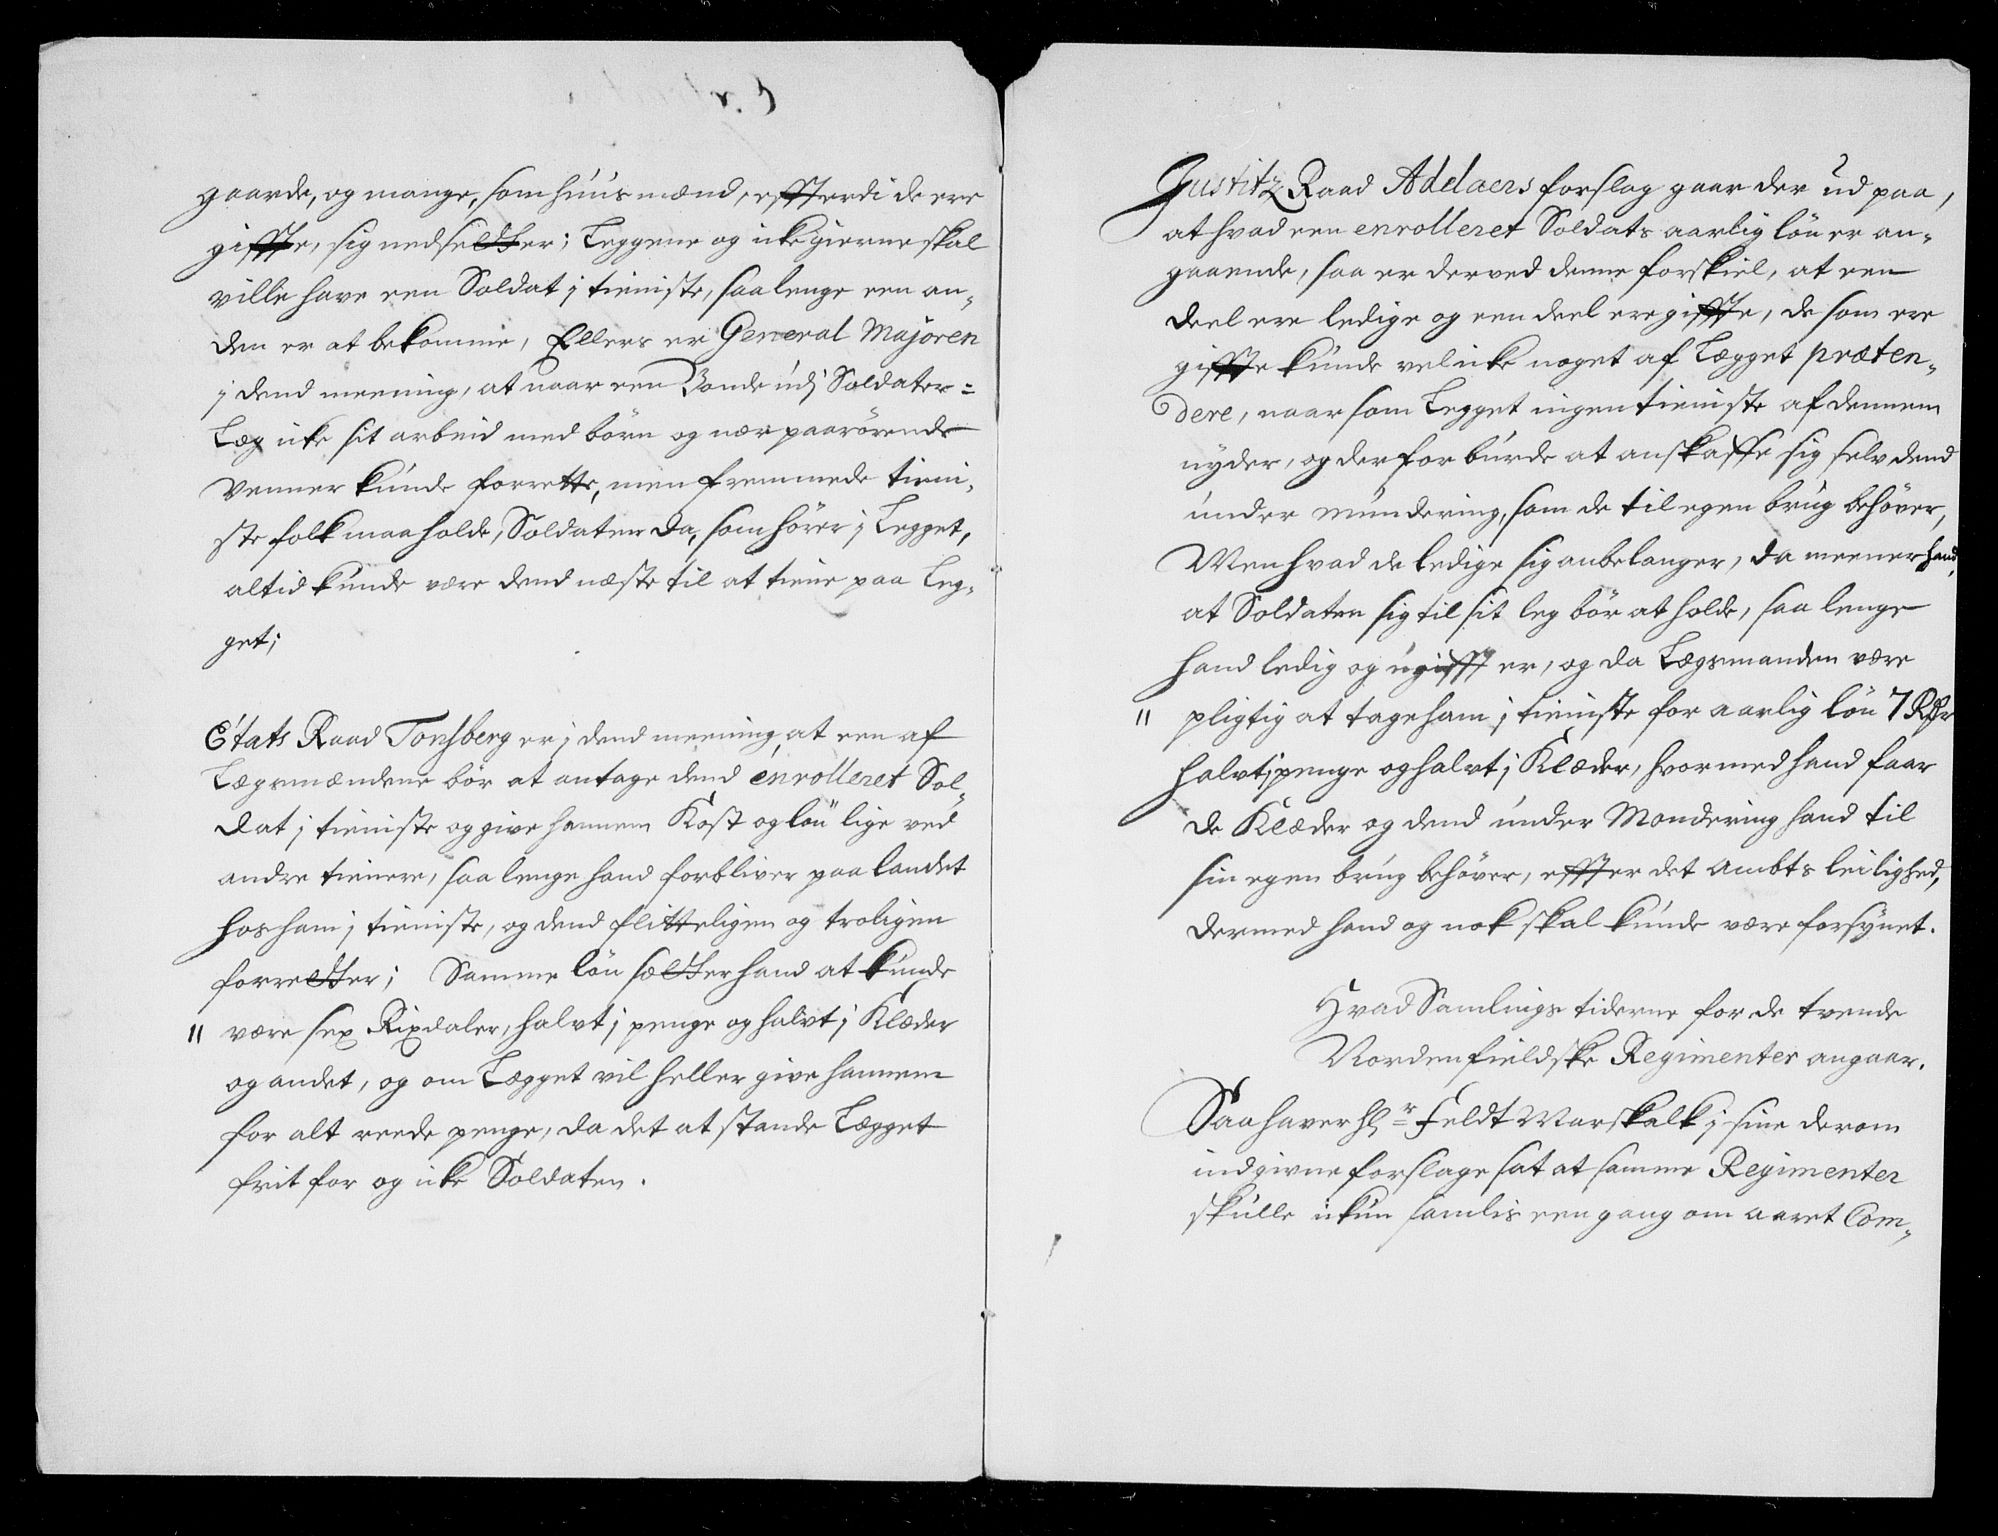 gaarde, og mange, som huus mænd, effterdi de ere
giffte, sig nedsetter; Leggene og icke gierne skal
ville have een Soldat j tieniste, saa lenge een an-
den er at bekomme, Ellers er General Majoren
j dend meening, at naar een Bonde udj Soldater=
Læg icke sit arbeid med børn og nær paarørende
Venner kunde forrette, men fremmede tieni-
ste folk maa holde, Soldaten da, som hører j Legget,
altid kunde være dend næste til at tiene paa Leg-
get;
Etats Raad Tonsberg er j dend meening, at een af
Lægsmændene bør at antage dend enrolleret Sol-
dat j tieniste og give hannem Kost og løn lige ved
andre tienere, saa lenge hand forbliver paa landet
hos ham j tieniste, og dend flitteligen og troligen
forretter; Samme løn sætter hand at kunde
" være sex Rixdaler, halvt j penge og halvt j Klæder
og andet, og om Lægget vil heller give hannem
for alt reede penge, da det at stande Lægget
frit for og icke Soldaten.
Justitz Raad Adelaers forslag gaar der ud paa,
at hvad een enrolleret Soldats aarlig løn er an-
gaaende, saa er derved denne forskiel, at een
deel ere ledige og een deel ere giffte, de som ere
giffte kunde vel icke noget af Lægget præten-
dere, naar som Legget ingen tieniste af dennem
nyder, og derfor burde at anskaffe sig selv dend
under mundering, som de til egen brug behøver,
Men hvad de ledige sig anbelanger, da meener hand,
at Soldaten sig til sit leg bør at holde, saa lenge
hand ledig og ugifft er, og da Lægsmanden være
" pligtig at tage ham j tieniste for aarlig løn 7 Rdr
halvt j penge og halvt j Klæder, hvormed hand faar
de Klæder og dend under Mondering hand til
sin egen brug behøver, effter det Ambts leilighed,
dermed hand og nok skal kunde være forsynet.
Hvad Samlings tiderne for de tvende
Nordenfieldske Regimenter angaar.
Saa haver Hr Feldt Marskalk j sine derom
indgivne forslage sat at samme Regimenter
skulle ickun samlis een gang om aaret Com-